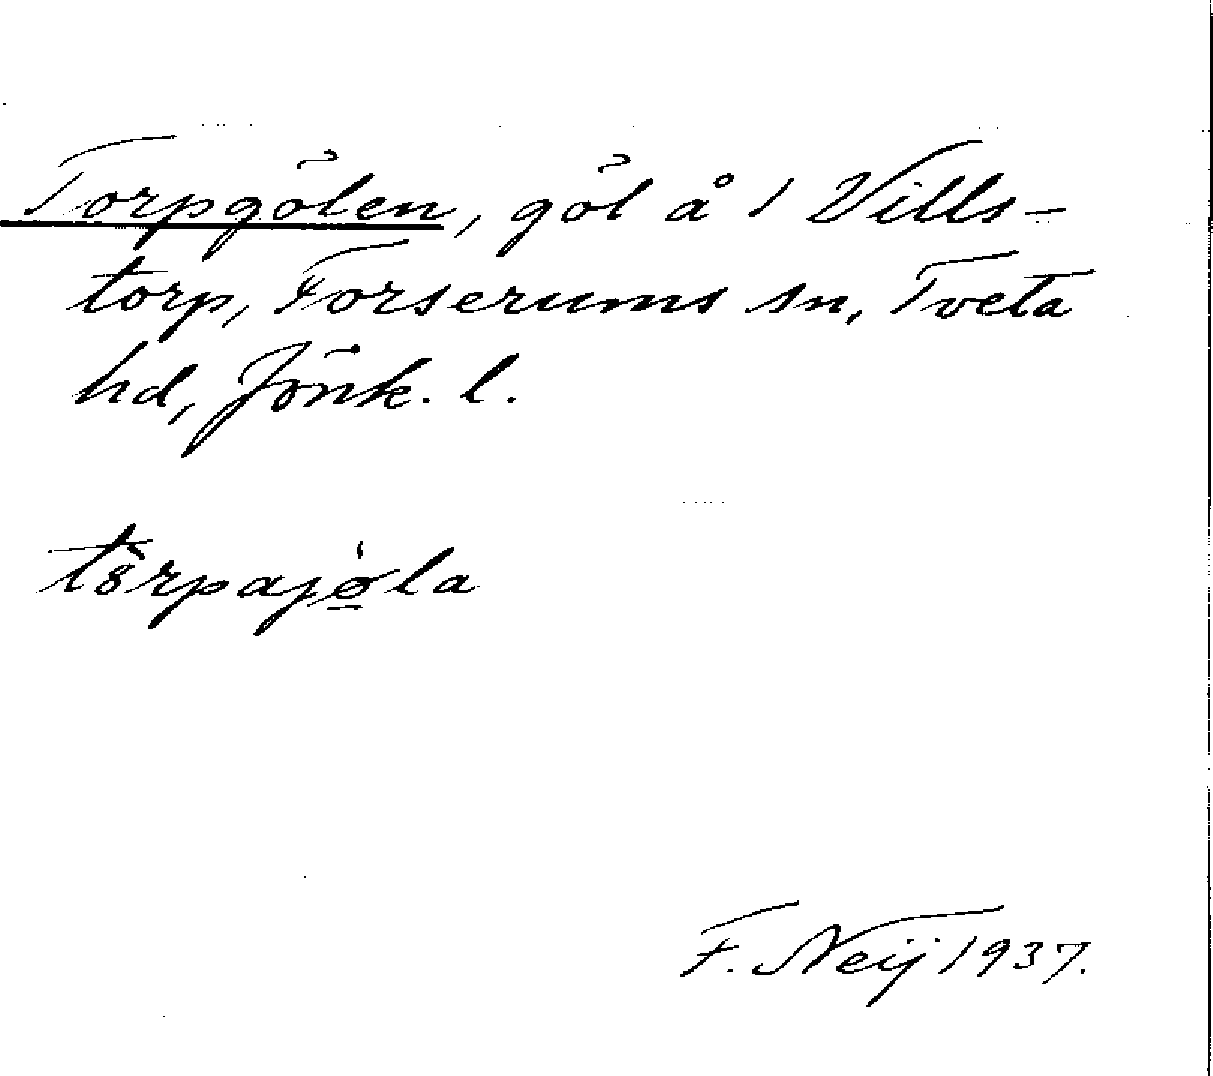 Torpgölen, göl å 1 Vills-
torp, Forserums sn, Tveta
hd, Jönk. l.
F. Neij 1937.